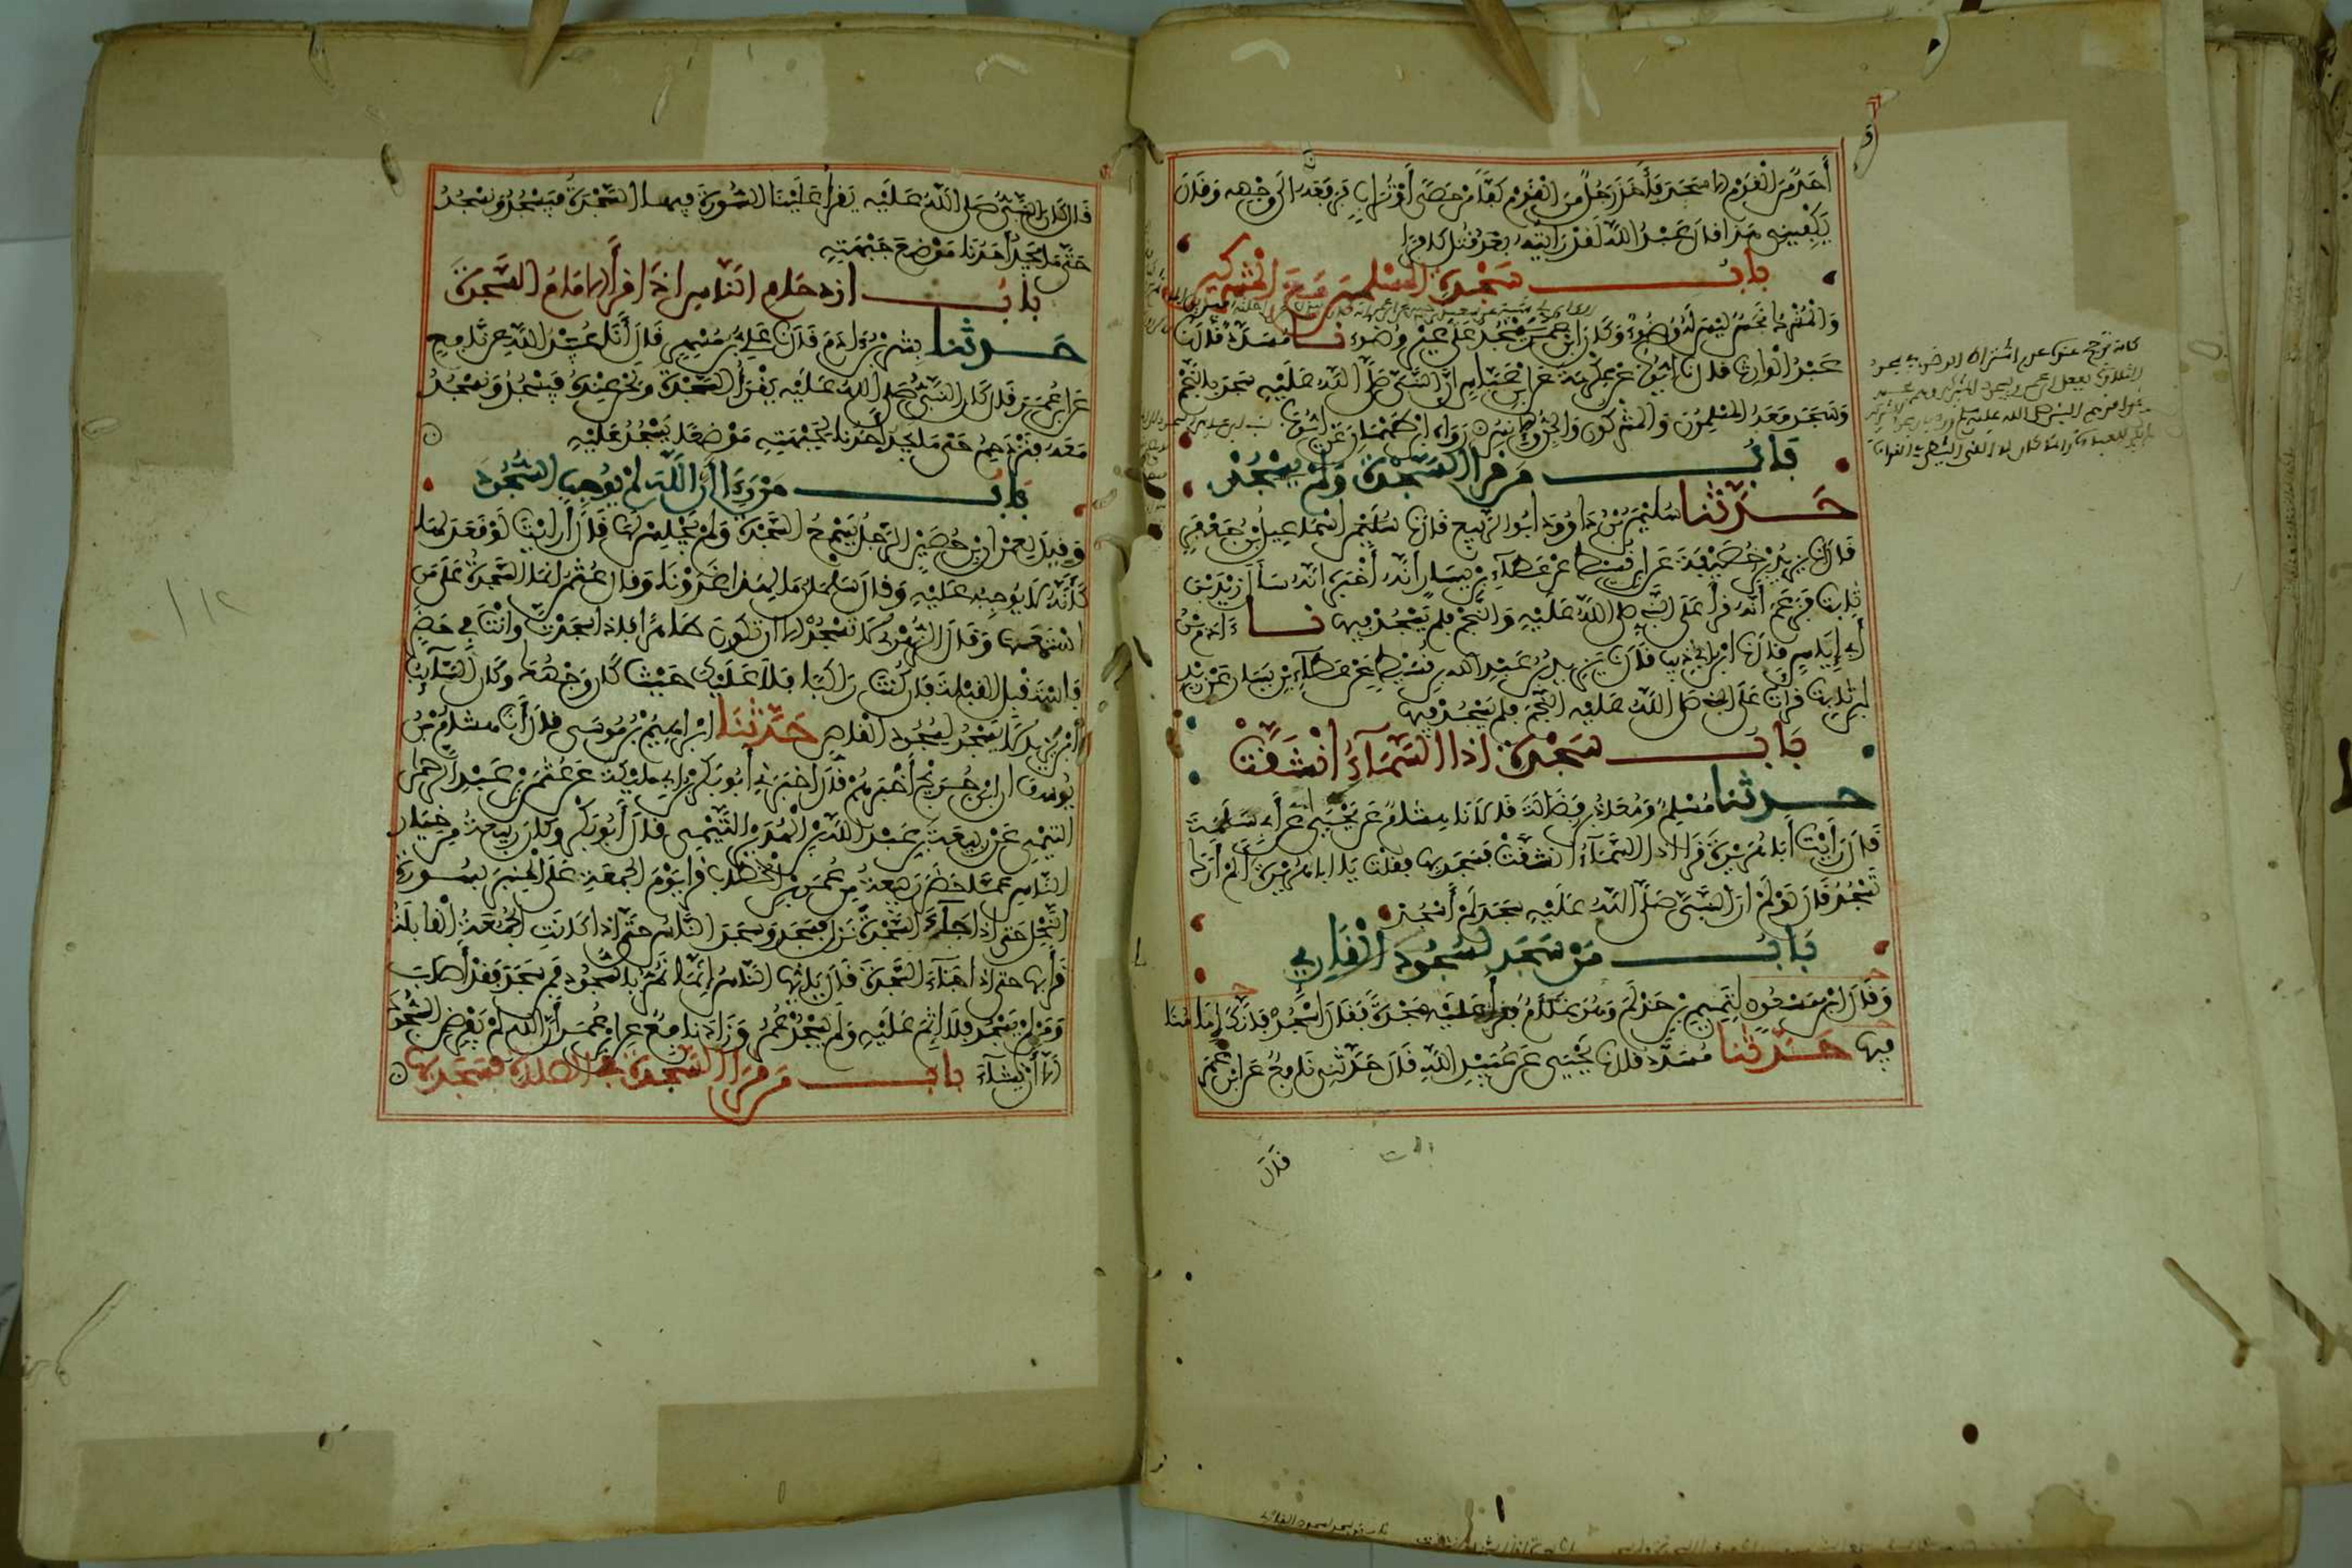 أَحَدٌ مِنَ الْقَوْمِ إلا سَجَدَ فَأَخَذَ رَجُلٌ مِنَ الْقَوْمِ كَفًّا مِنْ حَصًى أَوْ تُرَابٍ فَرَفَعَهُ الى وَجْهِهِ وَقَالَ
يَكْفِينِي هَذا قال عَبْدُ اللَّهِ لَقَدْ رَأَيْتُهُ بَعْدُ قُتِلَ كافِرًا
بَابُ سَجْدَةِ الْمُسْلِمِينَ مَعَ الْمُشْرِكِينَ
وَالْمُشْرِكُ نَجَسٌ لَيْسَ لَهُ وُضُوءٌ وَكَانَ ابْنُ عُمَرَ يَسْجُدُ عَلَى غَيْرِ وُضُوءٍ نا مُسَدَّدٌ قال نا
عَبْدُ الْوَارِثِ قال نا أَيُّوبُ عَنْ عِكْرِمَةَ عَنِ ابْنِ عَبَّاسٍ أَنَّ النَّبِيَّ صَلَّى اللَّهُ عَلَيْهِ سَجَدَ بِالنَّجْمِ
وَسَجَدَ مَعَهُ الْمُسْلِمُونَ وَالْمُشْرِكُونَ وَالْجِنُّ وَالإِنْسُ رَوَاهُ ابْنُ طَهْمَانَ عَنْ أَيُّوبَ
بَابُ مَنْ قَرَأَ السَّجْدَةَ وَلَمْ يَسْجُدْ
حَدَّثَنَا سُلَيْمَنُ بْنُ دَاوُودَ أَبُو الرَّبِيعِ قال نا إِسْمَاعِيلُ بْنُ جَعْفَرٍ
قال نا يَزِيدُ بْنُ خُصَيْفَةَ عَنِ ابْنِ قُسَيْطٍ عَنْ عَطَاءِ بْنِ يَسَارٍ أَنَّهُ أَخْبَرَهُ أَنَّهُ سَأَلَ زَيْدَ بْنَ
ثَابِتٍ فَزَعَمَ أَنَّهُ قَرَأَ عَلَى النَّبِيِّ صلى اللَّهُ عَلَيْهِ وَالنَّجْمِ فَلَمْ يَسْجُدْ فِيهَا نا ءَادَمُ بْنُ
أَبِي إِيَاسٍ قال نا ابْنُ أَبِي ذِيبٍ قال نا يَزِيدُ بْنُ عَبْدِ اللَّهِ بْنِ قُسَيْطٍ عَنْ عَطَاءِ بْنِ يَسَارٍ عَنْ زَيْدِ
بْنِ ثَابِتٍ قَرَأْتُ عَلَى النبي صلى اللَّهُ عَلَيْهِ النَّجْمَ فَلَمْ يَسْجُدْ فِيهَا
بَابُ سَجْدَةِ إذا السَّمَآءُ انْشَقَّتْ
حدثنا مُسْلِمٌ وَمُعَاذُ بْنُ فَضَالَةَ قَالا نَا هِشَامٌ عَنْ يَحْيَى عَنْ أَبِي سَلَمَةَ
قَالَ رَأَيْتُ أَبَا هُرَيْرَةَ قَرَأَ إذا السَّمَآءُ انْشَقَّتْ فَسَجَدَ بِهَا فَقُلْتُ يَا أَبَا هُرَيْرَةَ أَلَمْ أَرَكَ
تَسْجُدُ قَالَ لَوْ لَمْ أَرَ النَّبِيَّ صَلَّى اللَّهُ عَلَيْهِ سَجَدَ لَمْ أَسْجُدْ
بَابُ مَنْ سَجَدَ لِسُجُودِ الْقَارِي
وَقَالَ ابْنُ مَسْعُودٍ لِتَمِيمِ بْنِ حَذْلَمٍ وَهُوَ غُلَامٌ فَقَرَأَ عَلَيْهِ سَجْدَةً فَقَالَ اسْجُدْ فَإِنَّكَ إِمَامُنَا
فِيهَا حَدَّثَنَا مُسَدَّدٌ قال نا يَحْيَى عَنْ عُبَيْدِ اللَّهِ قَالَ حَدَّثَنِي نَافِعٌ عَنِ ابْنِ عُمَرَ
قَالَ
قَالَ كَانَ النَّبِيُّ صَلَّى اللَّهُ عَلَيْهِ يَقْرَأُ عَلَيْنَا السُّورَةَ فِيهَا السَّجْدَةُ فَيَسْجُدُ وَنَسْجُدُ
حَتَّى مَا يَجِدُ أَحَدُنَا مَوْضِعَ جَبْهَتِهِ
بَابُ ازدحام النَّاسِ إذا قرأ الإمام السَّجْدَةَ
حدثنا بِشْرُ بْنُ ءَادَمَ قَالَ نا عَلِيُّ بْنُ مُسْهِرٍ قَالَ أَنَا عُبَيْدُ اللَّهِ عَنْ نَافِعٍ
عَنِ ابْنِ عُمَرَ قَالَ كَانَ النَّبِيُّ صَلَّى اللَّهُ عَلَيْهِ يَقْرَأُ السَّجْدَةَ وَنَحْنُ عِنْدَهُ فَيَسْجُدُ وَنَسْجُدُ
مَعَهُ فَنَزْدَحِمُ حَتَّى مَا يَجِدُ أَحَدُنَا لِجَبْهَتِهِ مَوْضِعًا يَسْجُدُ عَلَيْهِ
بَابُ مَنْ رَءَا أَنَّ اللَّهَ لَمْ يُوجِبِ السُّجُودَ
وَقِيلَ لِعِمْرَانَ بْنِ حُصَيْنٍ الرَّجُلُ يَسْمَعُ السَّجْدَةَ وَلَمْ يَجْلِسْ لَهَا قَالَ أَرَأَيْتَ لَوْ قَعَدَ لَهَا
كَأَنَّهُ لَا يُوجِبُهُ عَلَيْهِ وَقَالَ سَلْمَانُ مَا لِهَذَا غَدَوْنَا وَقَالَ عُثْمَنُ إِنَّمَا السَّجْدَةُ عَلَى مَنِ
اسْتَمَعَهَا وَقَالَ الزُّهْرِيُّ لَا تَسْجُدْ إلا أَنْ تَكُونَ طَاهِرًا فَإِذَا سَجَدْتَ وَأَنْتَ فِي حَضَرٍ
فَاسْتَقْبِلِ الْقِبْلَةَ فَإِنْ كُنْتَ رَاكِبًا فَلَا عَلَيْكَ حَيْثُ كَانَ وَجْهُكَ وَكَانَ السَّآئِبُ
بْنُ يَزِيدَ لَا يَسْجُدُ لِسُجُودِ الْقَاصِّ حَدَّثَنَا إِبْرَاهِيمُ بْنُ مُوسَى قَالَ أَنَا هِشَامُ بْنُ
يُوسُفَ أَنَّ ابْنَ جُرَيْجٍ أَخْبَرَهُمْ قَالَ أَخْبَرَنِي أَبُو بَكْرِ بْنُ أَبِي مُلَيْكَةَ عَنْ عُثْمَنَ بْنِ عَبْدِ الرَّحْمَنِ
التَّيْمِيِّ عَنْ رَبِيعَةَ بْنِ عَبْدِ اللَّهِ بْنِ الْهُدَيْرِ التَّيْمِيِّ قَالَ أَبُو بَكْرٍ وَكَانَ رَبِيعَةُ مِنْ خِيَارِ
النَّاسِ عَمَّا حَضَرَ رَبِيعَةُ مِنْ عُمَرَ بْنِ الْخَطَّابِ قَرَأَ يَوْمَ الْجُمُعَةِ عَلَى الْمِنْبَرِ بِسُورَةِ
النَّحْلِ حَتَّى إِذَا جَآءَ السَّجْدَةَ نَزَلَ فَسَجَدَ وَسَجَدَ النَّاسُ حَتَّى إِذَا كَانَتِ الْجُمُعَةُ الْقَابِلَةُ
قَرَأَ بِهَا حَتَّى إِذَا جَآءَ السَّجْدَةَ قَالَ يَا أَيُّهَا النَّاسُ إِنَّمَا نَمُرُّ بِالسُّجُودِ فَمَنْ سَجَدَ فَقَدْ أَصَابَ
وَمَنْ لَمْ يَسْجُدْ فَلَا إِثْمَ عَلَيْهِ وَلَمْ يَسْجُدْ عُمَرُ وَزَادَ نَافِعٌ عَنِ ابْنِ عُمَرَ أَنَّ اللَّهَ لَمْ يَفْرِضِ السُّجُودَ
إلا أَنْ نَشَآءَ بَابُ مَنْ قَرَأَ السَّجْدَةَ فِي الصَّلَاةِ فَسَجَدَ بِهَا